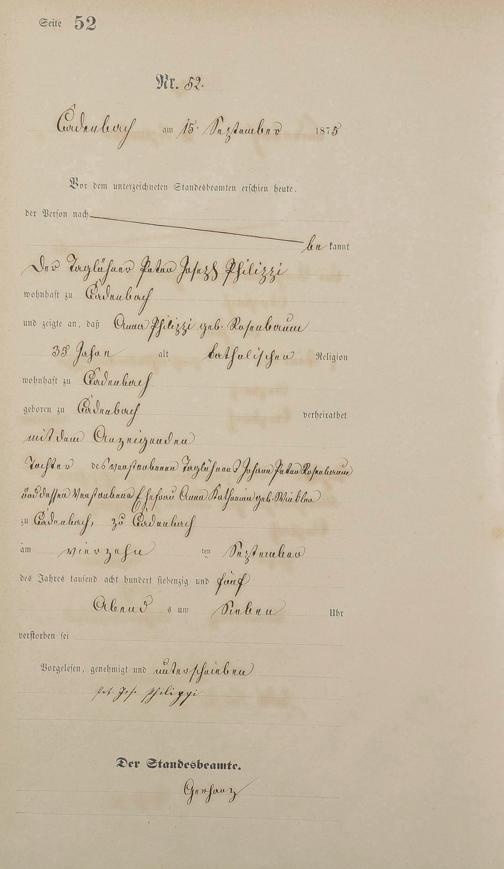 Seite 52
Nr. 52.
Cadenbach am 15. September 1875
Vor dem unterzeichneten Standesbeamten erschien heute,
der Person nach
be kannt
der Taglöhner Peter Joseph Philippi
wohnhaft zu Cadenbach
und zeigte an, daß Anna Philippi geb. Rosenbaum
35 Jahre alt katholischen Religion
wohnhaft zu Cadenbach
geboren zu Cadenbach verheirathet
mit dem Anzeigenden
Tochter des verstorbenen Taglöhners Johann Peter Rosenbaum
und dessen verstorbene Ehefrau Anna Katharina geb. Winkler
zu Cadenbach, zu Cadenbach
am vierzehn ten September
des Jahres tausend acht hundert siebenzig und fünf
Abend s um Sieben Uhr
verstorben sei
Vorgelesen, genehmigt und unterschrieben
Pet. Jos. Philippi
Der Standesbeamte.
Gerharz